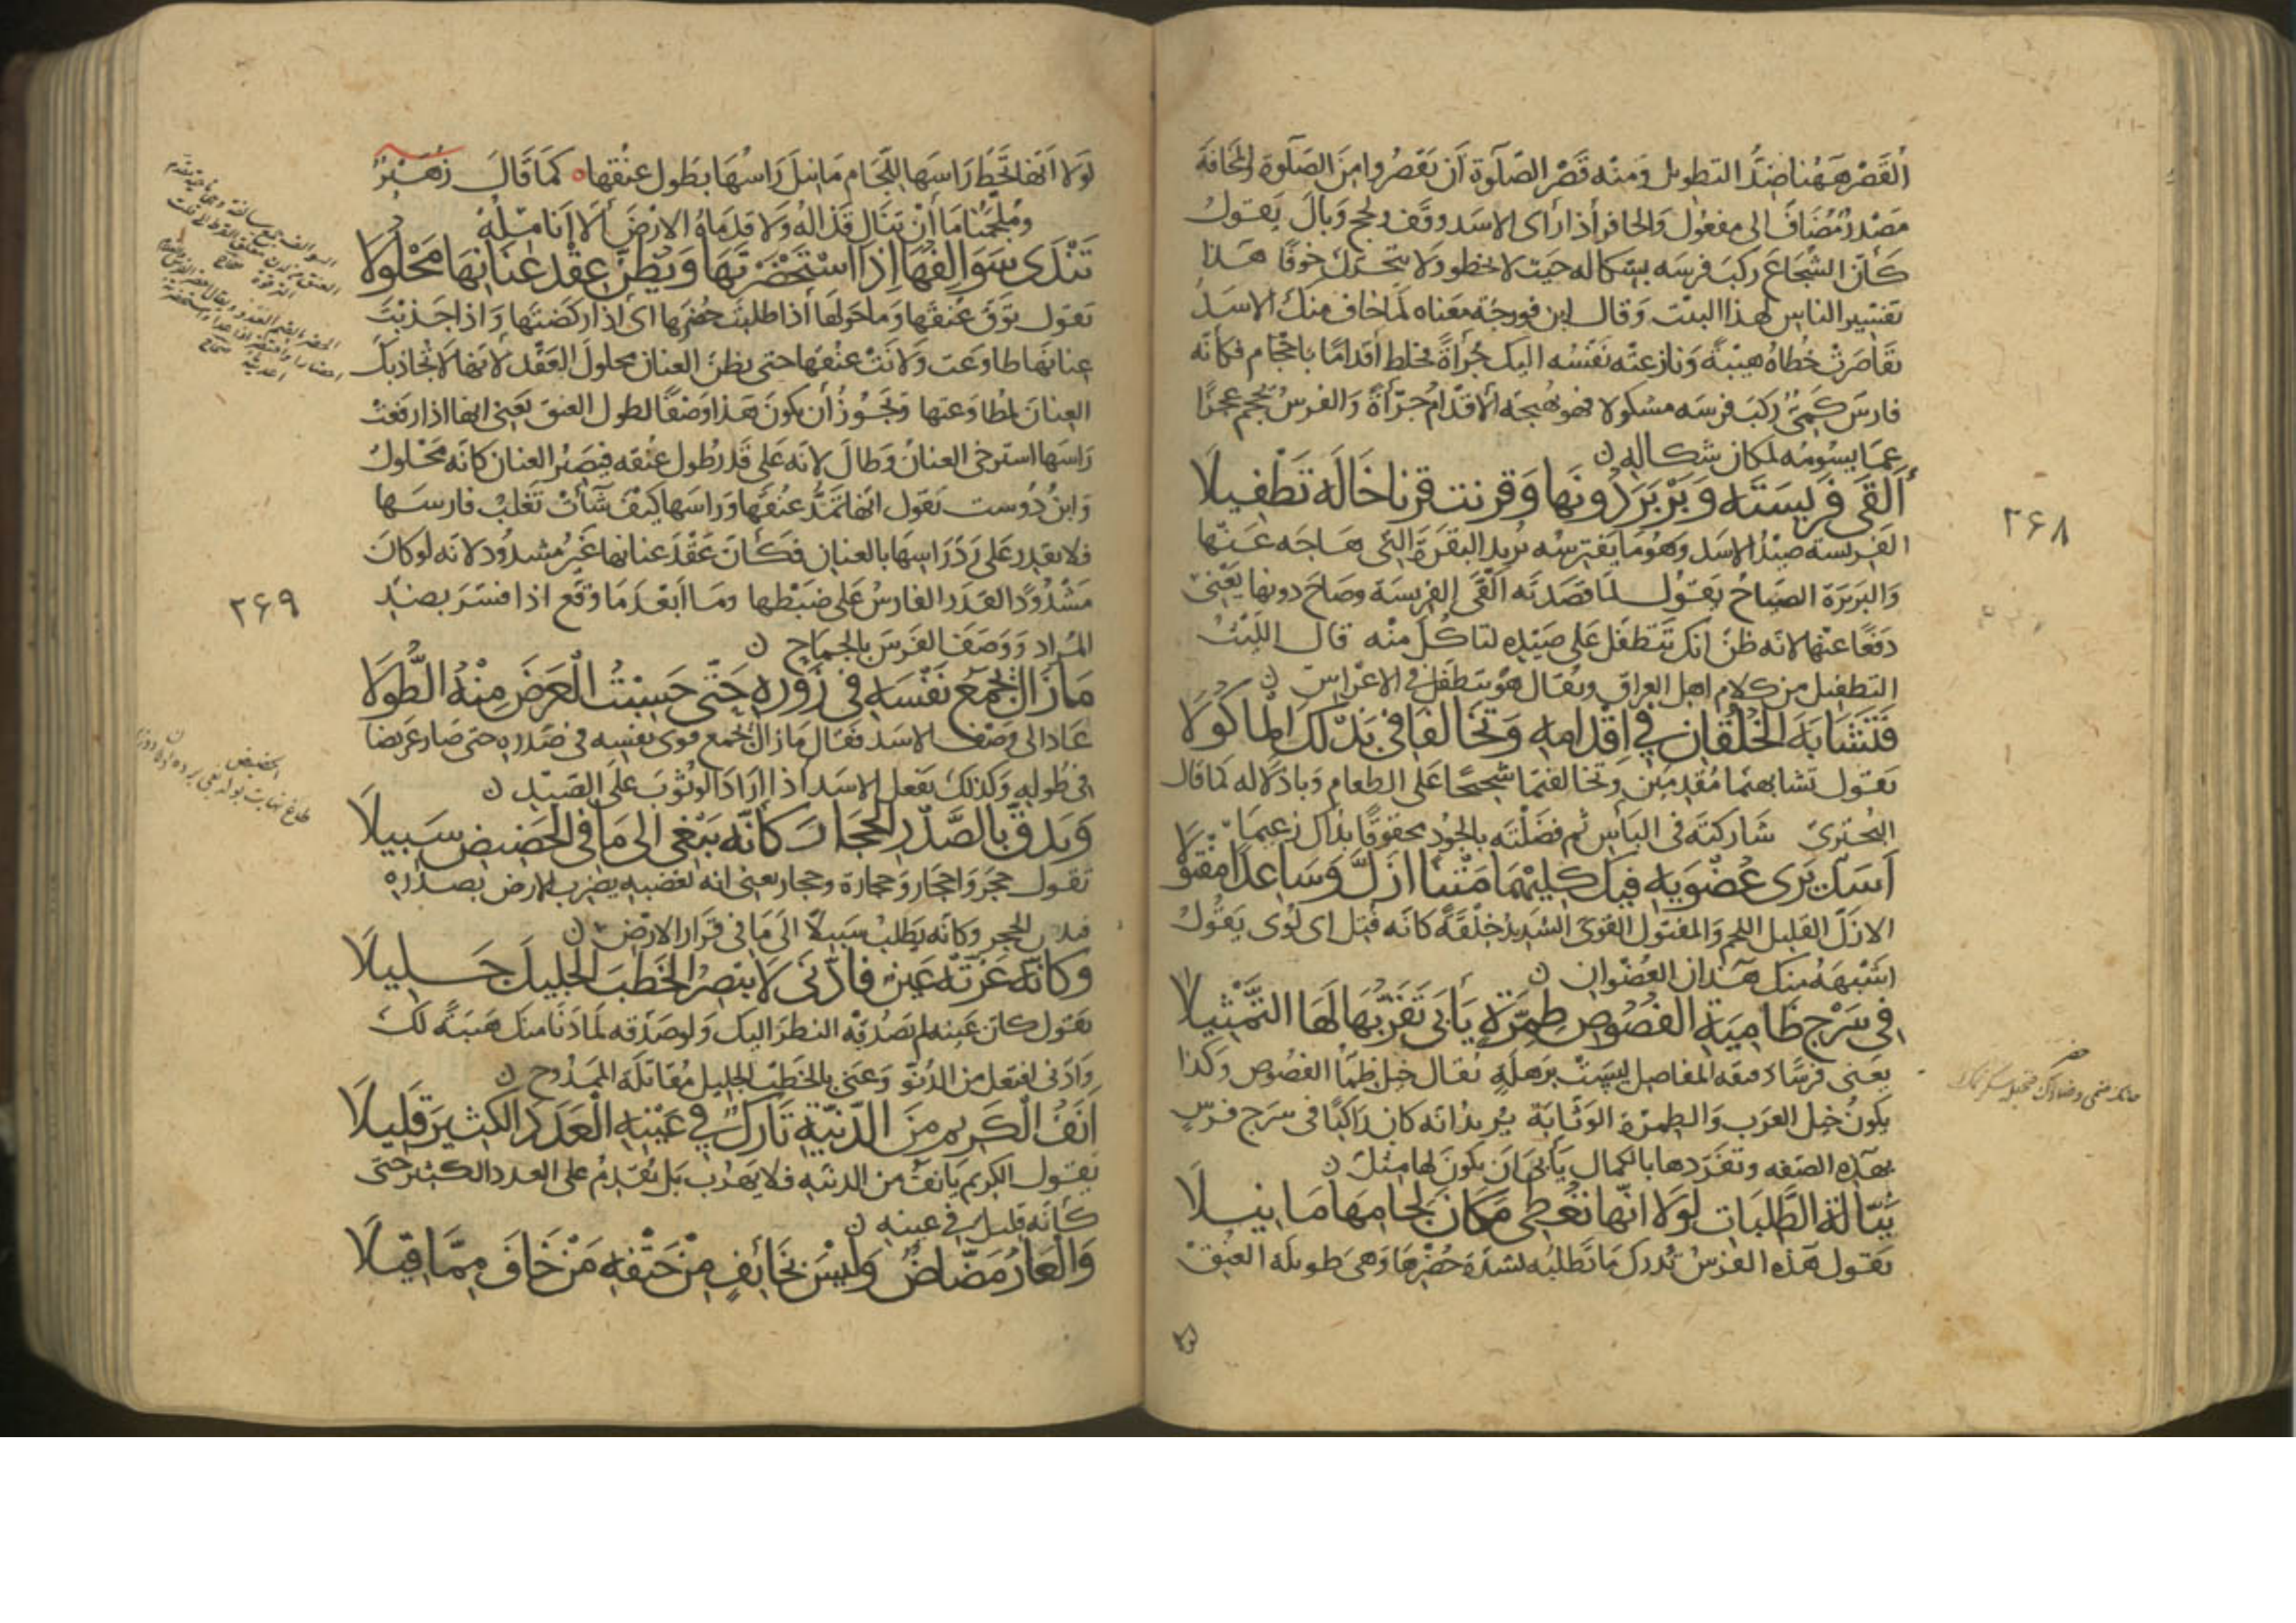 القصر ههنا ضدّ التطويل ومنه قصر الصلوة أن تقصروا من الصلوة والمخافة
مصدر مُضاف الى مفعول والحافر اذا رأى الاسد وقف ولحج وبال يقول
كأنّ الشجاع ركب فرسه بشكاله حيث لا يخطو ولا يتحرك خوفًا هذا
تفسير الناس لهذا البيت وقال ابن فورجة معناه لما خاف منك الاسد
تقاصرت خُطاه هيبةً ونازعته نفسه اليك جُرأةً فخلط أقدامًا باحجام فكأنه
فارس كميّ ركب فرسه مشكولا فهو يهيجه الاقدام جرأةً والفرس يحجم عجزًا
عمّا يسومه لمكان شكاله ن
أَلقى فريسته وبربر دونها وقربت قربا خاله تطفيلا
٢۶٨
الفريسة صيد الاسد وهو ما يفترسه يريد البقرة التي هاجه عنها
والبربرة الصياح يقول لما قصدته القى الفريسة وصاح دونها يعني
دفعًا عنها لانه ظنّ انك تتطفل على صيده لتاكل منه قال الليث
التطفيل من كلام اهل العراق ويقال هو يتطفل في الاعراس ن
فتشابه الخلقان في اقدامه وتخالفا في بذلك المأكولا
يقول تشابهتما مُقدمين وتخالفتما شحيحًا على الطعام وباذلا له كما قال
البحتري شاركته في البأس ثم فضلته بالجود محقوقًا بذاك زعيما
أسد يرى عضويه فيك كليهما متنا ازلّ وساعدا مفتولا
الازلّ القليل اللحم والمفتول القوي الشديد خلقةً كأنه فُتِل اي لُوي يقول
اشبهه منك هذان العضوان ن
في سرج ظامية الفصوص طمرّة يأبى تفرّدها لها التمثيلا
يعني فرسًا دقيقة المفاصل ليست برهلةٍ يقال خيل ظِماء الفصوص وكذا
يكون خيل العرب والطمرّة الوثّابة يريد انه كان راكبًا في سرج فرسٍ
بهذه الصفه وتفرّدها بالكمال يأبى ان يكون لها مثل ن
نيّالة الطلبات لولا انّها تعطي مكان لجامها ما نيلا
يقول هذه الفرس تُدرك ما تطلبه لشدة حُضرها وهي طويلة العنق
لولا أنها تحُطّ راسها للّجام ما نيل راسها بطول عنقها ه كما قال زهير
ومُلجمنا ما أن ينال قذاله ولا قدماه الارض ألا انامله
تندى سوالفها اذا استحضرتها ويظنّ عقد عنانها محلولا
تقول توق عنقها وما حولها أذا طلبت حضرها اى اذا ركضتها واذا جذبت
عنانها طاوعت ولانت عنقها حتى يظنّ العنان محلول العقد لانها لا تجاذبك
العنان لمطاوعتها ويجوز أن يكون هذا وصفًا لطول العنق يعني انها اذا رفعت
راسها استرخى العنان وطال لانه على قدر طول عنقه فيصير العنان كأنه محلول
وابن دوست يقول انها تمدّ عنقها وراسها كيف شآءت تغلب فارسها
فلا يقدر على ردّ راسها بالعنان فكأنّ عقد عنانها غير مشدود لانه لو كان
مشدودًا لقدر الفارس على ضبطها وما أبعد ما وقع اذا فسّر بضدّ
٢۶٩
المراد ووصف الفرس بالجماح ن
ما زال يجمع نفسه في زوره حتّى حسبتُ العرض منه الطولا
عاد الى وصف الاسد فقال ما زال يجمع قوى نفسه في صدره حتى صار عريضا
في طوله وكذلك يفعل الاسد اذا اراد الوثوب على الصيد ن
ويدقّ بالصدر الحجار كأنّه يبغي الى ما في الحضيض سبيلا
الحضيض
تقول حجر واحجار وحجارة وحجار يعني انه لغضبه يضرب الارض بصدره
فيدق الحجر وكأنه يطلب سبيلًا الى ما في قرار الارض ن
وكأنّه غرّته عين فادّنى لا يبصر الخطب الجليل جليلا
يقول كأن عينه لم تصدقه النظر اليك ولو صدقه لما دنا منك هيبةً لك
وادّنى افتعل من الدنوّ وعنى بالخطب الجليل مقاتلة الممدوح ن
أنف الكريم من الدنيّة تارك في عينه العدد الكثير قليلا
يقول الكريم يأنف من الدنية فلا يهرب بل يُقدم على العدد الكثير حتى
كأنه قليل في عينه ن
والعار مضّاض وليس بخائفٍ من حتفه من خاف ممّا قيلا